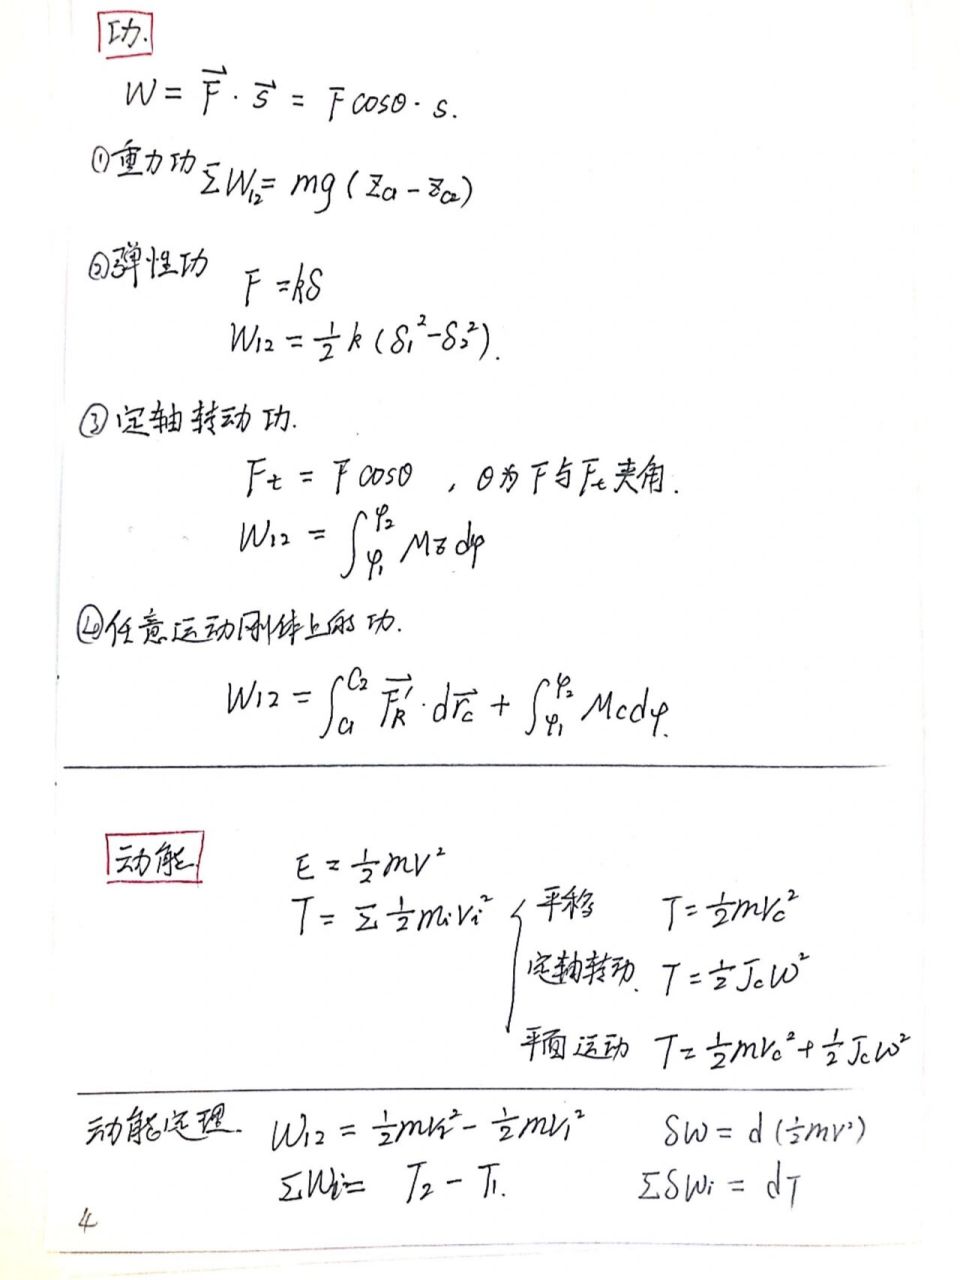 功.
W = F⃗ · s⃗ = F cosθ · s.
①重力功 ΣW₁₂ = mg ( z_C1 - z_C2 )
②弹性功
F = kδ
W₁₂ = ½ k (δ₁² - δ₂²).
③定轴转动功.
F_t = F cosθ , θ为F与F_t夹角.
W₁₂ = ∫_φ₁^φ₂ Mz dφ
④任意运动刚体上的功.
W₁₂ = ∫_C1^C2 F⃗'_R · dr⃗_C + ∫_φ₁^φ₂ Mc dφ.
动能.
E = ½ mv²
T = Σ ½ mᵢvᵢ²
平移 T = ½ mv_c²
定轴转动. T = ½ J_c ω²
平面运动 T = ½ mv_c² + ½ J_c ω²
动能定理. W₁₂ = ½ mv₂² - ½ mv₁² δW = d (½ mv²)
ΣWᵢ = T₂ - T₁. ΣδWᵢ = dT
4